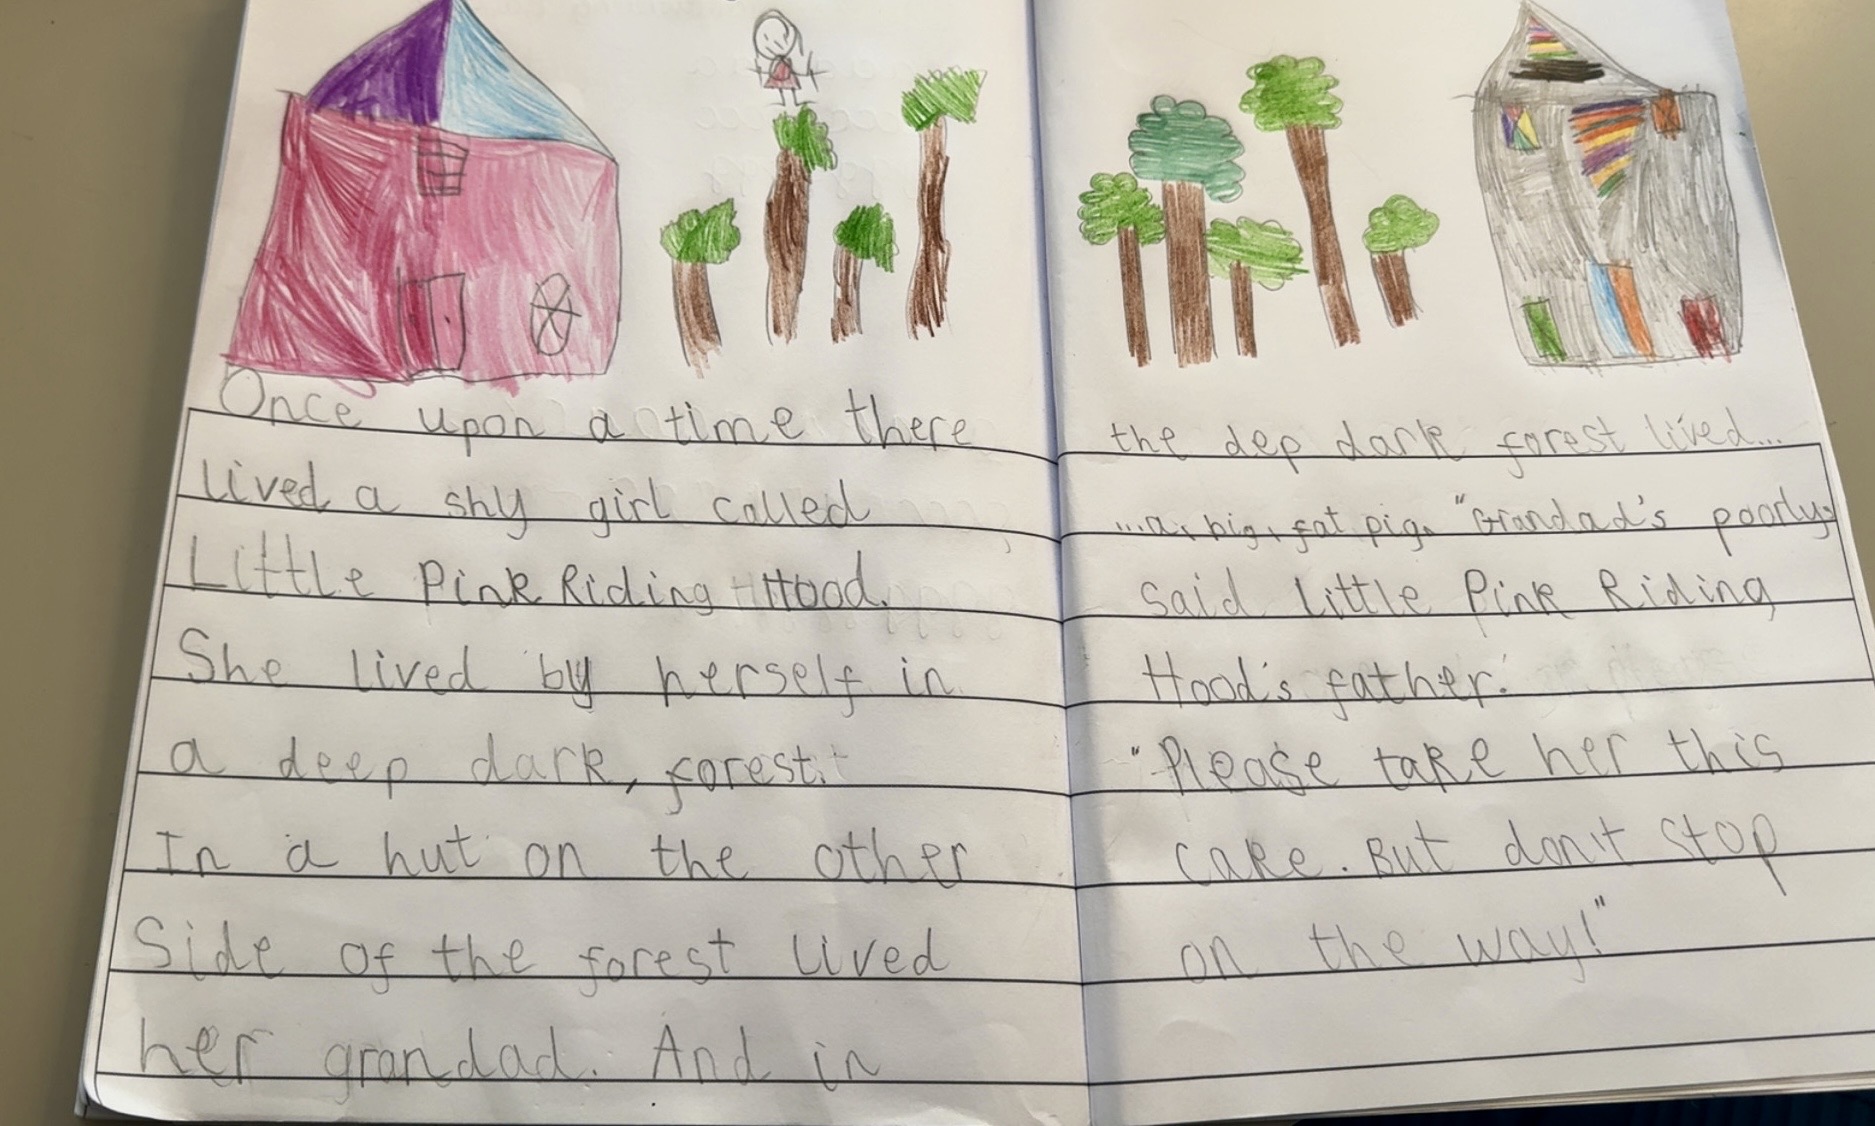 Once upon a time there
lived a shy girl called
Little Pink Riding Hood.
She lived by herself in
a deep dark, forest.
In a hut on the other
Side of the forest lived
her grandad. And in
the dep dark forest lived...
...a, big, fat pig. "Grandad's poorly"
said Little Pink Riding
Hood's father.
"Please take her this
cake. But don't stop
on the way!"